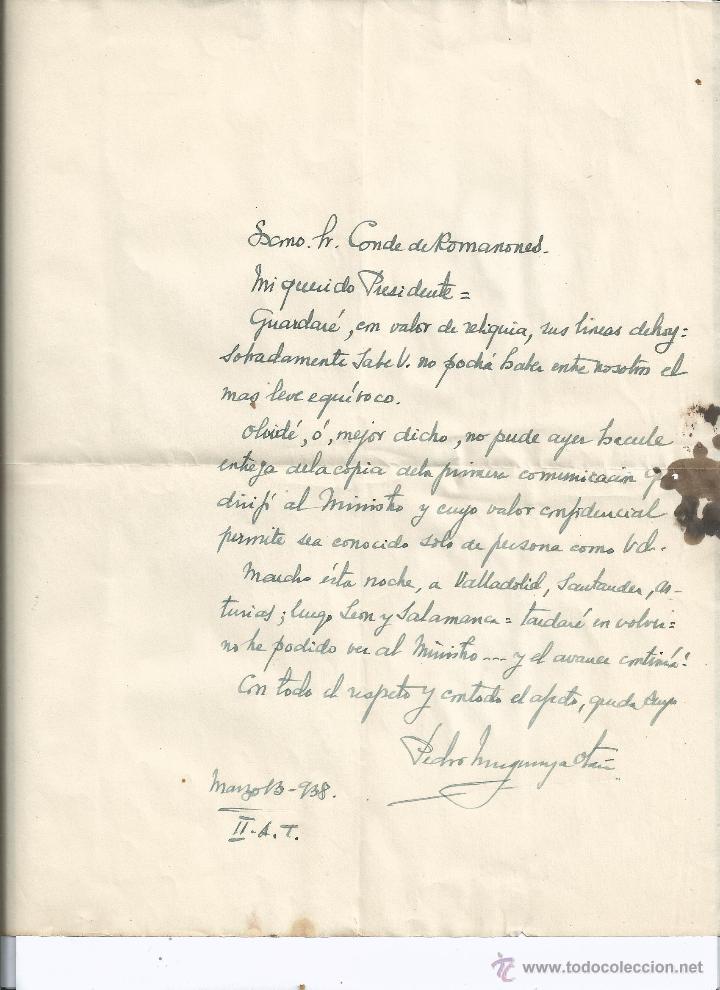 Excmo. Sr. Conde de Romanones.
Mi querido Presidente =
Guardaré, con valor de reliquia, sus lineas de hoy =
sobradamente sabe V. no podrá haber entre nosotros el
mas leve equívoco.
Olvidé, ó, mejor dicho, no pude ayer hacerle
entrega de la copia de la primera comunicación q
dirijí al Ministro y cuyo valor confidencial
permite sea conocido solo de persona como Vd.
Marcho ésta noche, a Valladolid, Santander, As-
turias; luego Leon y Salamanca = tardaré en volver =
no he podido ver al Ministro --- y el avance continúa!
Con todo el respeto y con todo el afecto, queda suyo
Pedro Muguruza Otaño
Marzo 13 - 938.
II - A. T.
www.todocoleccion.net